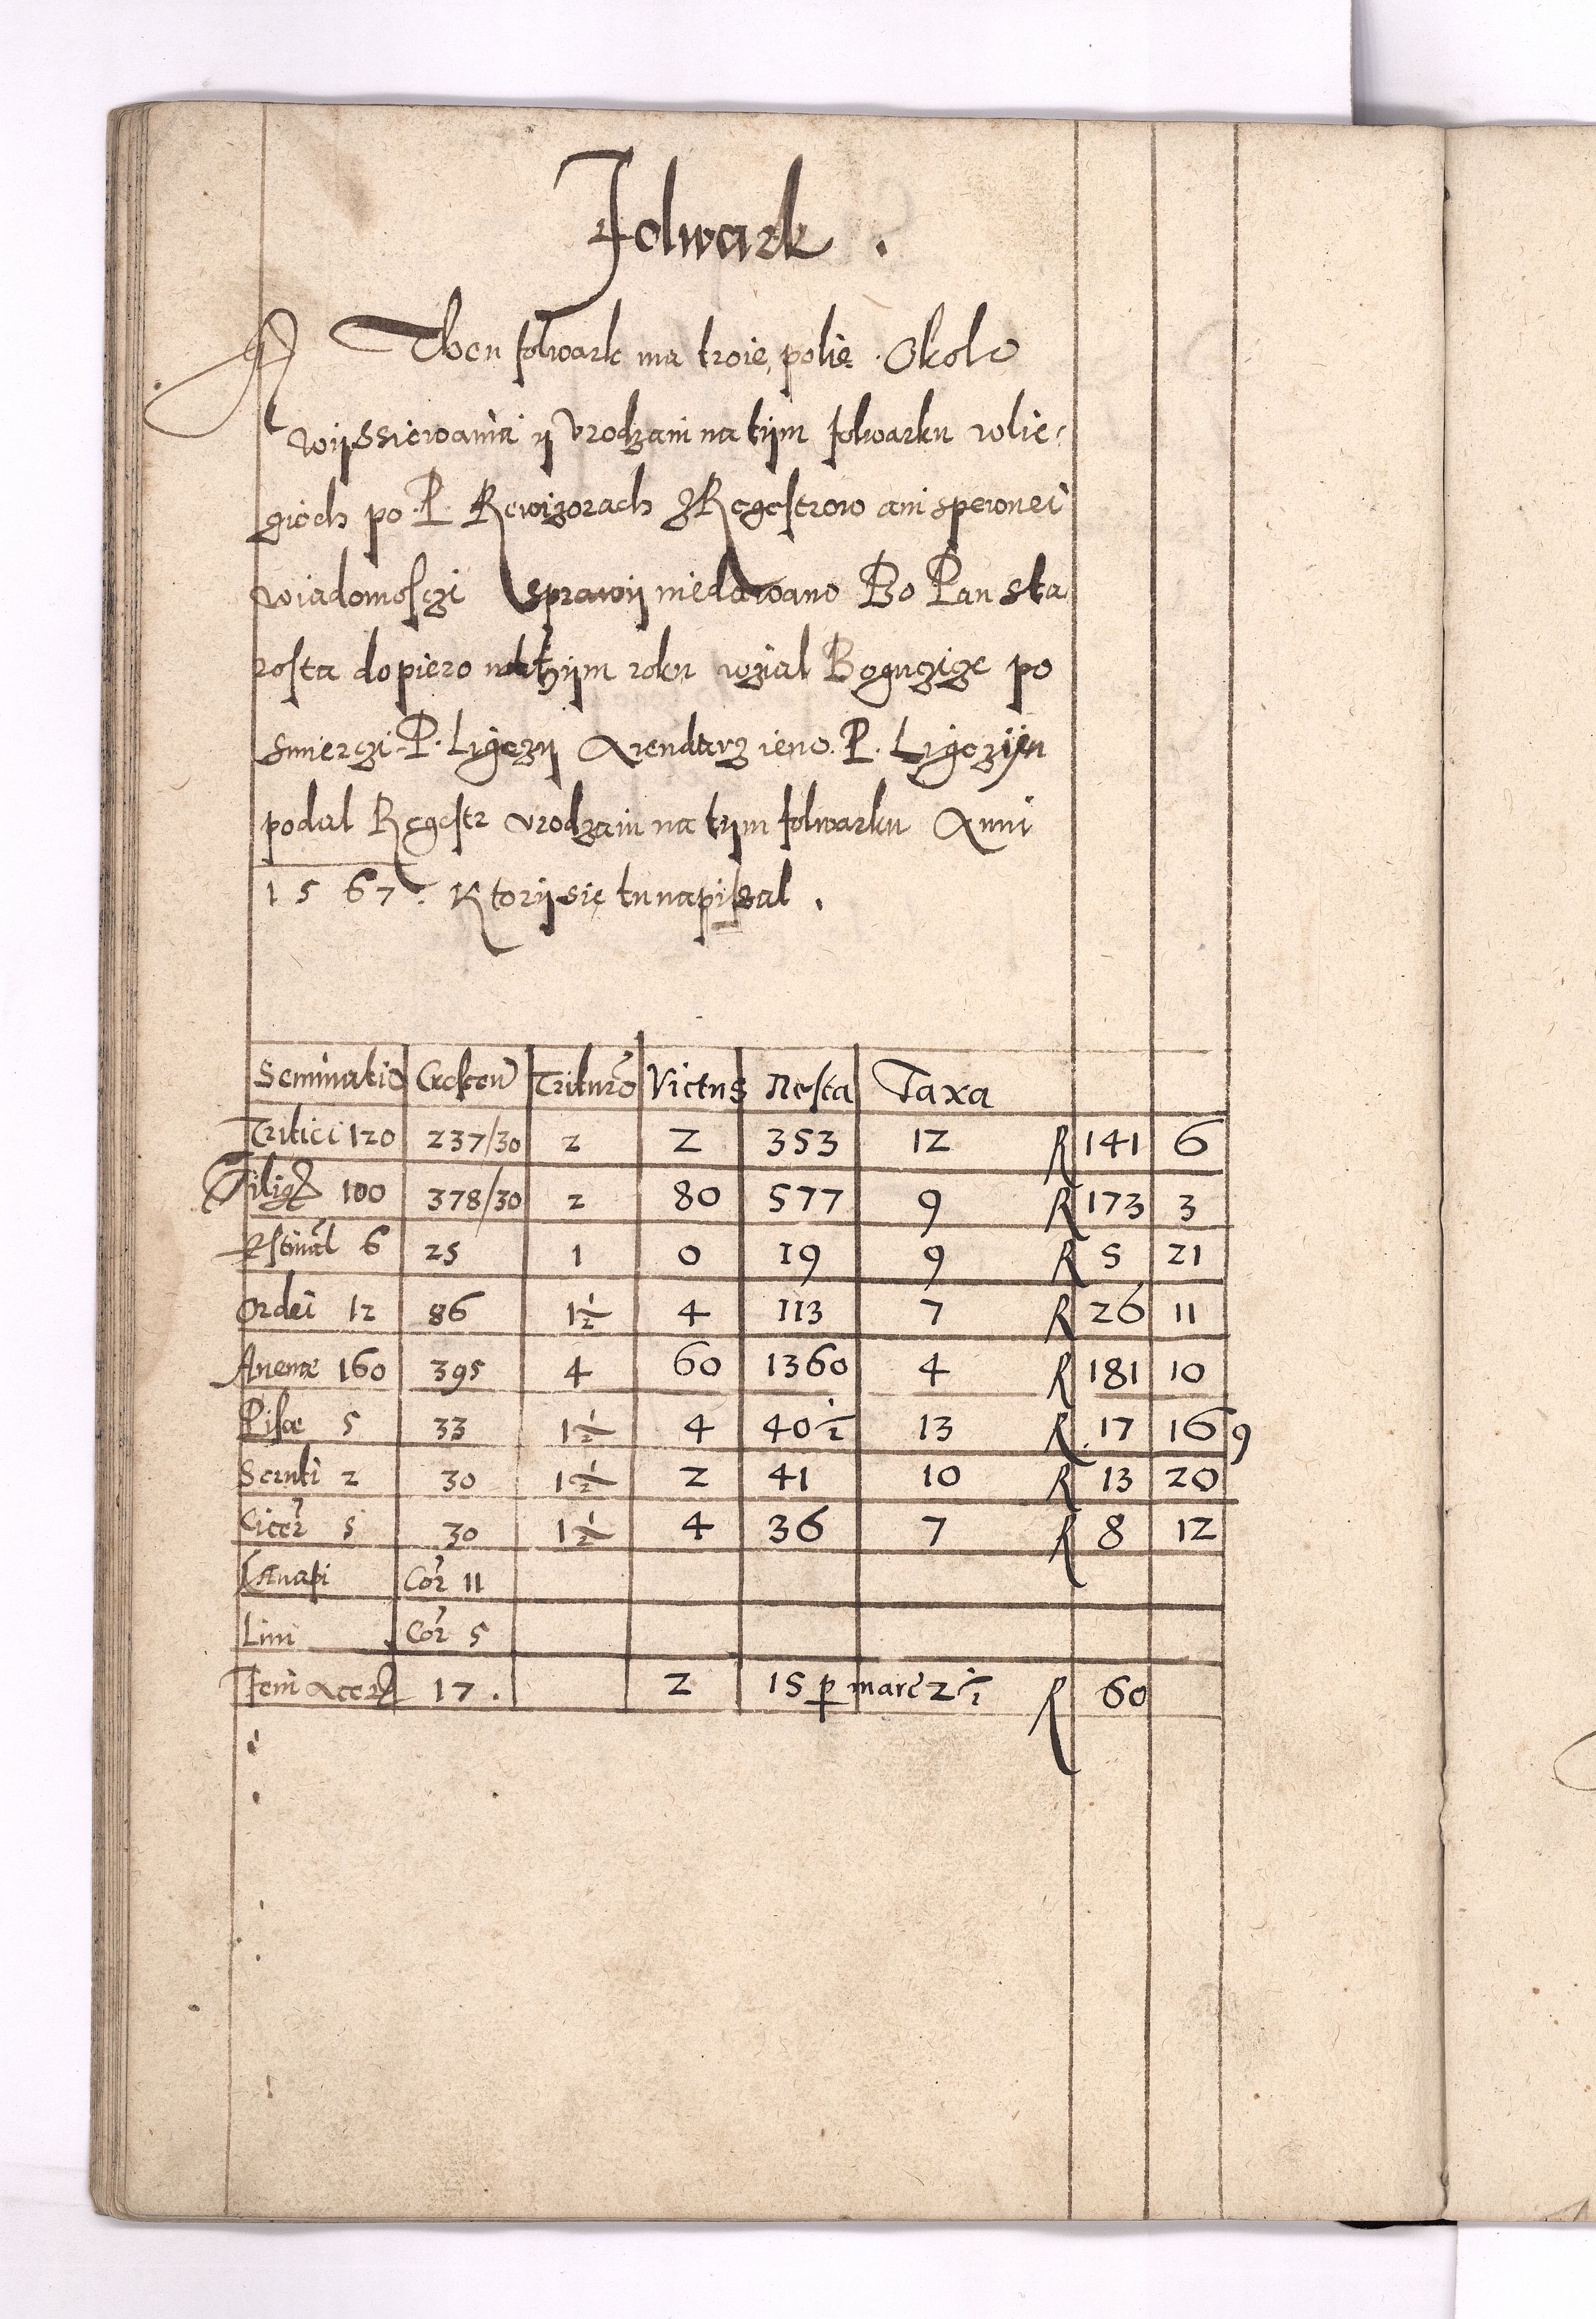 Folwark .
Then folwark ma troie polie . Okolo
wÿssiewania ÿ vrodzaiu na tÿm folwarku w lie-
giech po P. Rewizorach z Regestrow ani s pewnei
wiadomosczi sprawÿ nie dawano Bo Pan sta
rosta dopiero thÿm roku wzial Boguczicze po
smierczi P. Ligęzÿ Arendarz ieno P. Ligęzÿn
podal Regestr vrodzaiu na tÿm folwarku Anni
1567. Ktorÿ się tu napissal .
Seminatio Cresten Triturõ Victus Resta Taxa
Tritici 120 237/30 2 2 353 12 R 141 6
Silig 100 378/30 2 80 577 9 R 173 3
Estiual 6 25 1 0 19 9 R 5 21
Ordei 12 86 1½ 4 113 7 R 26 11
Auenæ 160 395 4 60 1360 4 R 181 10
Pisæ 5 33 1½ 4 40½ 13 R 17 16 9
2 30 1½ 2 41 10 R 13 20
Cicer 5 30 1½ 4 36 7 R 8 12
Canapi Cor 11
Lini Cor 5
Feni Acer 17 . 2 15 p marc 2½ R 60